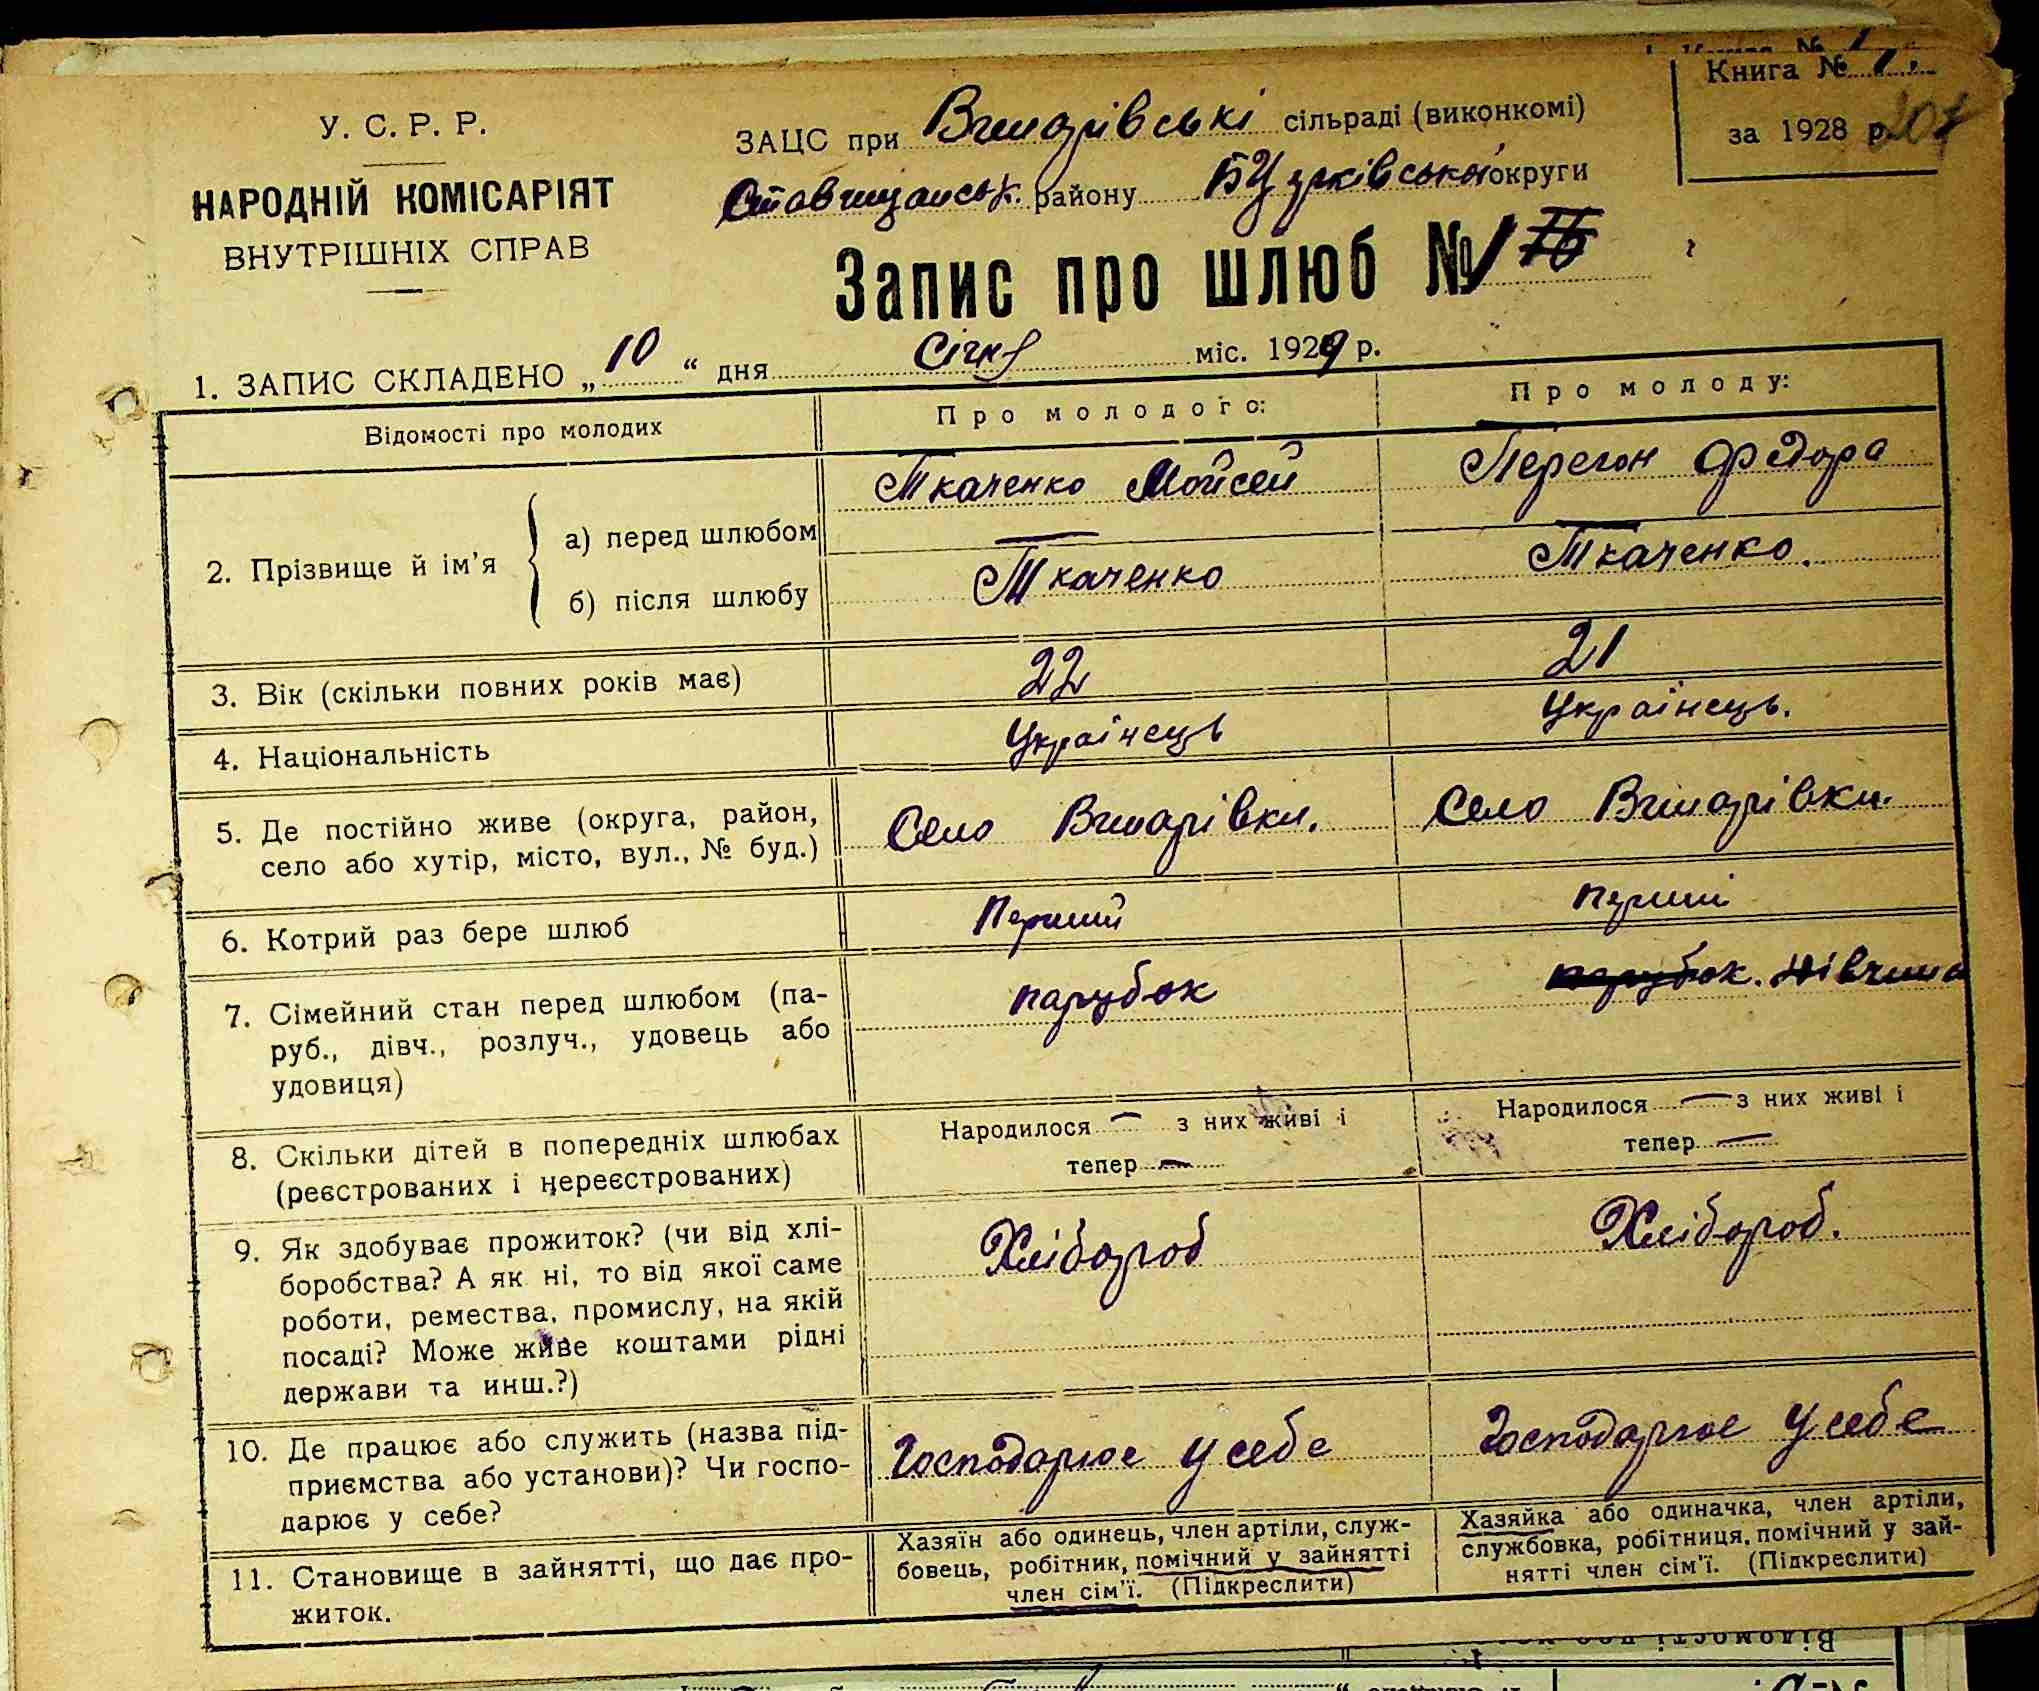 Книга № 1.
за 1928 р. 207
У. С. Р. Р.
НАРОДНІЙ КОМІСАРІЯТ
ВНУТРІШНІХ СПРАВ
ЗАЦС при Вишарівські сільраді (виконкомі)
Ставищанськ. району БЦерківської округи
Запис про шлюб № 1
1. ЗАПИС СКЛАДЕНО „ 10 “ дня Січня міс. 1929 р.
Відомості про молодих
Про молодого:
Про молоду:
2. Прізвище й ім’я
а) перед шлюбом
Ткаченко Мойсей
Перегон Федора
б) після шлюбу
Ткаченко
Ткаченко.
3. Вік (скільки повних років має)
22
21
4. Національність
Українець
Українець.
5. Де постійно живе (округа, район,
село або хутір, місто, вул., № буд.)
Село Вишарівки.
Село Вишарівки.
6. Котрий раз бере шлюб
Перший
перші
7. Сімейний стан перед шлюбом (па-
руб., дівч., розлуч., удовець або
удовиця)
парубок
парубок. дівчина
8. Скільки дітей в попередніх шлюбах
(реєстрованих і нереєстрованих)
Народилося — з них живі і
тепер —
Народилося — з них живі і
тепер —
9. Як здобуває прожиток? (чи від хлі-
боробства? А як ні, то від якої саме
роботи, ремества, промислу, на якій
посаді? Може живе коштами рідні
держави та инш.?)
Хлібороб
Хлібороб.
10. Де працює або служить (назва під-
приємства або установи)? Чи госпо-
дарює у себе?
Господарює у себе
Господарює у себе
11. Становище в зайнятті, що дає про-
житок.
Хазяїн або одинець, член артіли, служ-
бовець, робітник, помічний у зайнятті
член сім’ї. (Підкреслити)
Хазяйка або одиначка, член артіли,
службовка, робітниця, помічний у зай-
нятті член сім’ї. (Підкреслити)